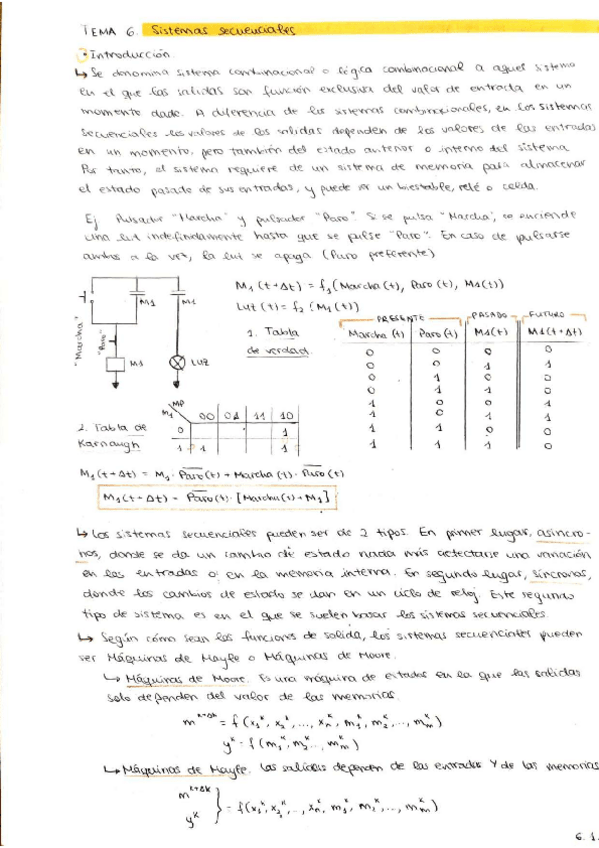 TEMA 6. Sistemas secuenciales
• Introducción.
↳ Se denomina sistema combinacional o lógica combinacional a aquel sistema
en el que las salidas son función exclusiva del valor de entrada en un
momento dado. A diferencia de los sistemas combinacionales, en los sistemas
secuenciales los valores de las salidas dependen de los valores de las entradas
en un momento, pero también del estado anterior o interno del sistema.
Por tanto, el sistema requiere de un sistema de memoria para almacenar
el estado pasado de sus entradas, y puede ser un biestable, relé o celda.
Ej. Pulsador "Marcha" y pulsador "Paro". Si se pulsa "Marcha", se enciende
una luz indefinidamente hasta que se pulse "Paro". En caso de pulsarse
ambos a la vez, la luz se apaga (Paro preferente)
"Marcha"
M1
M1
"Paro"
M1
LUZ
M1 (t+Δt) = f1 (Marcha (t), Paro (t), M1(t))
Luz (t) = f2 (M1(t))
1. Tabla
de verdad.
PRESENTE PASADO FUTURO
Marcha (t) Paro (t) M1(t) M1(t+Δt)
0 0 0 0
0 0 1 1
0 1 0 0
0 1 1 0
1 0 0 1
1 0 1 1
1 1 0 0
1 1 1 0
2. Tabla de
Karnaugh
M1 MP 00 01 11 10
0 1
1 1 1
M1(t+Δt) = M1 · Paro(t) + Marcha (t) · Paro(t)
M1(t+Δt) = Paro(t) · [Marcha(t) + M1]
↳ Los sistemas secuenciales pueden ser de 2 tipos. En primer lugar, asíncro-
nos, donde se da un cambio de estado nada más detectarse una variación
en las entradas o en la memoria interna. En segundo lugar, síncronos,
donde los cambios de estado se dan en un ciclo de reloj. Este segundo
tipo de sistema es en el que se suelen basar los sistemas secuenciales.
↳ Según cómo sean las funciones de salida, los sistemas secuenciales pueden
ser Máquinas de Mayle o Máquinas de Moore.
↳ Máquinas de Moore. Es una máquina de estados en la que las salidas
solo dependen del valor de las memorias.
m^k+Δk = f (x1^k, x2^k, ..., xn^k, m1^k, m2^k, ..., mm^k)
y^k = f (m1^k, m2^k, ..., mm^k)
↳ Máquinas de Mayle. Las salidas dependen de las entradas Y de las memorias
m^k+Δk
y^k } = f(x1^k, x2^k, ..., xn^k, m1^k, m2^k, ..., mm^k)
6.1.